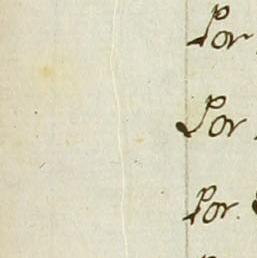 Por
Por
Por.